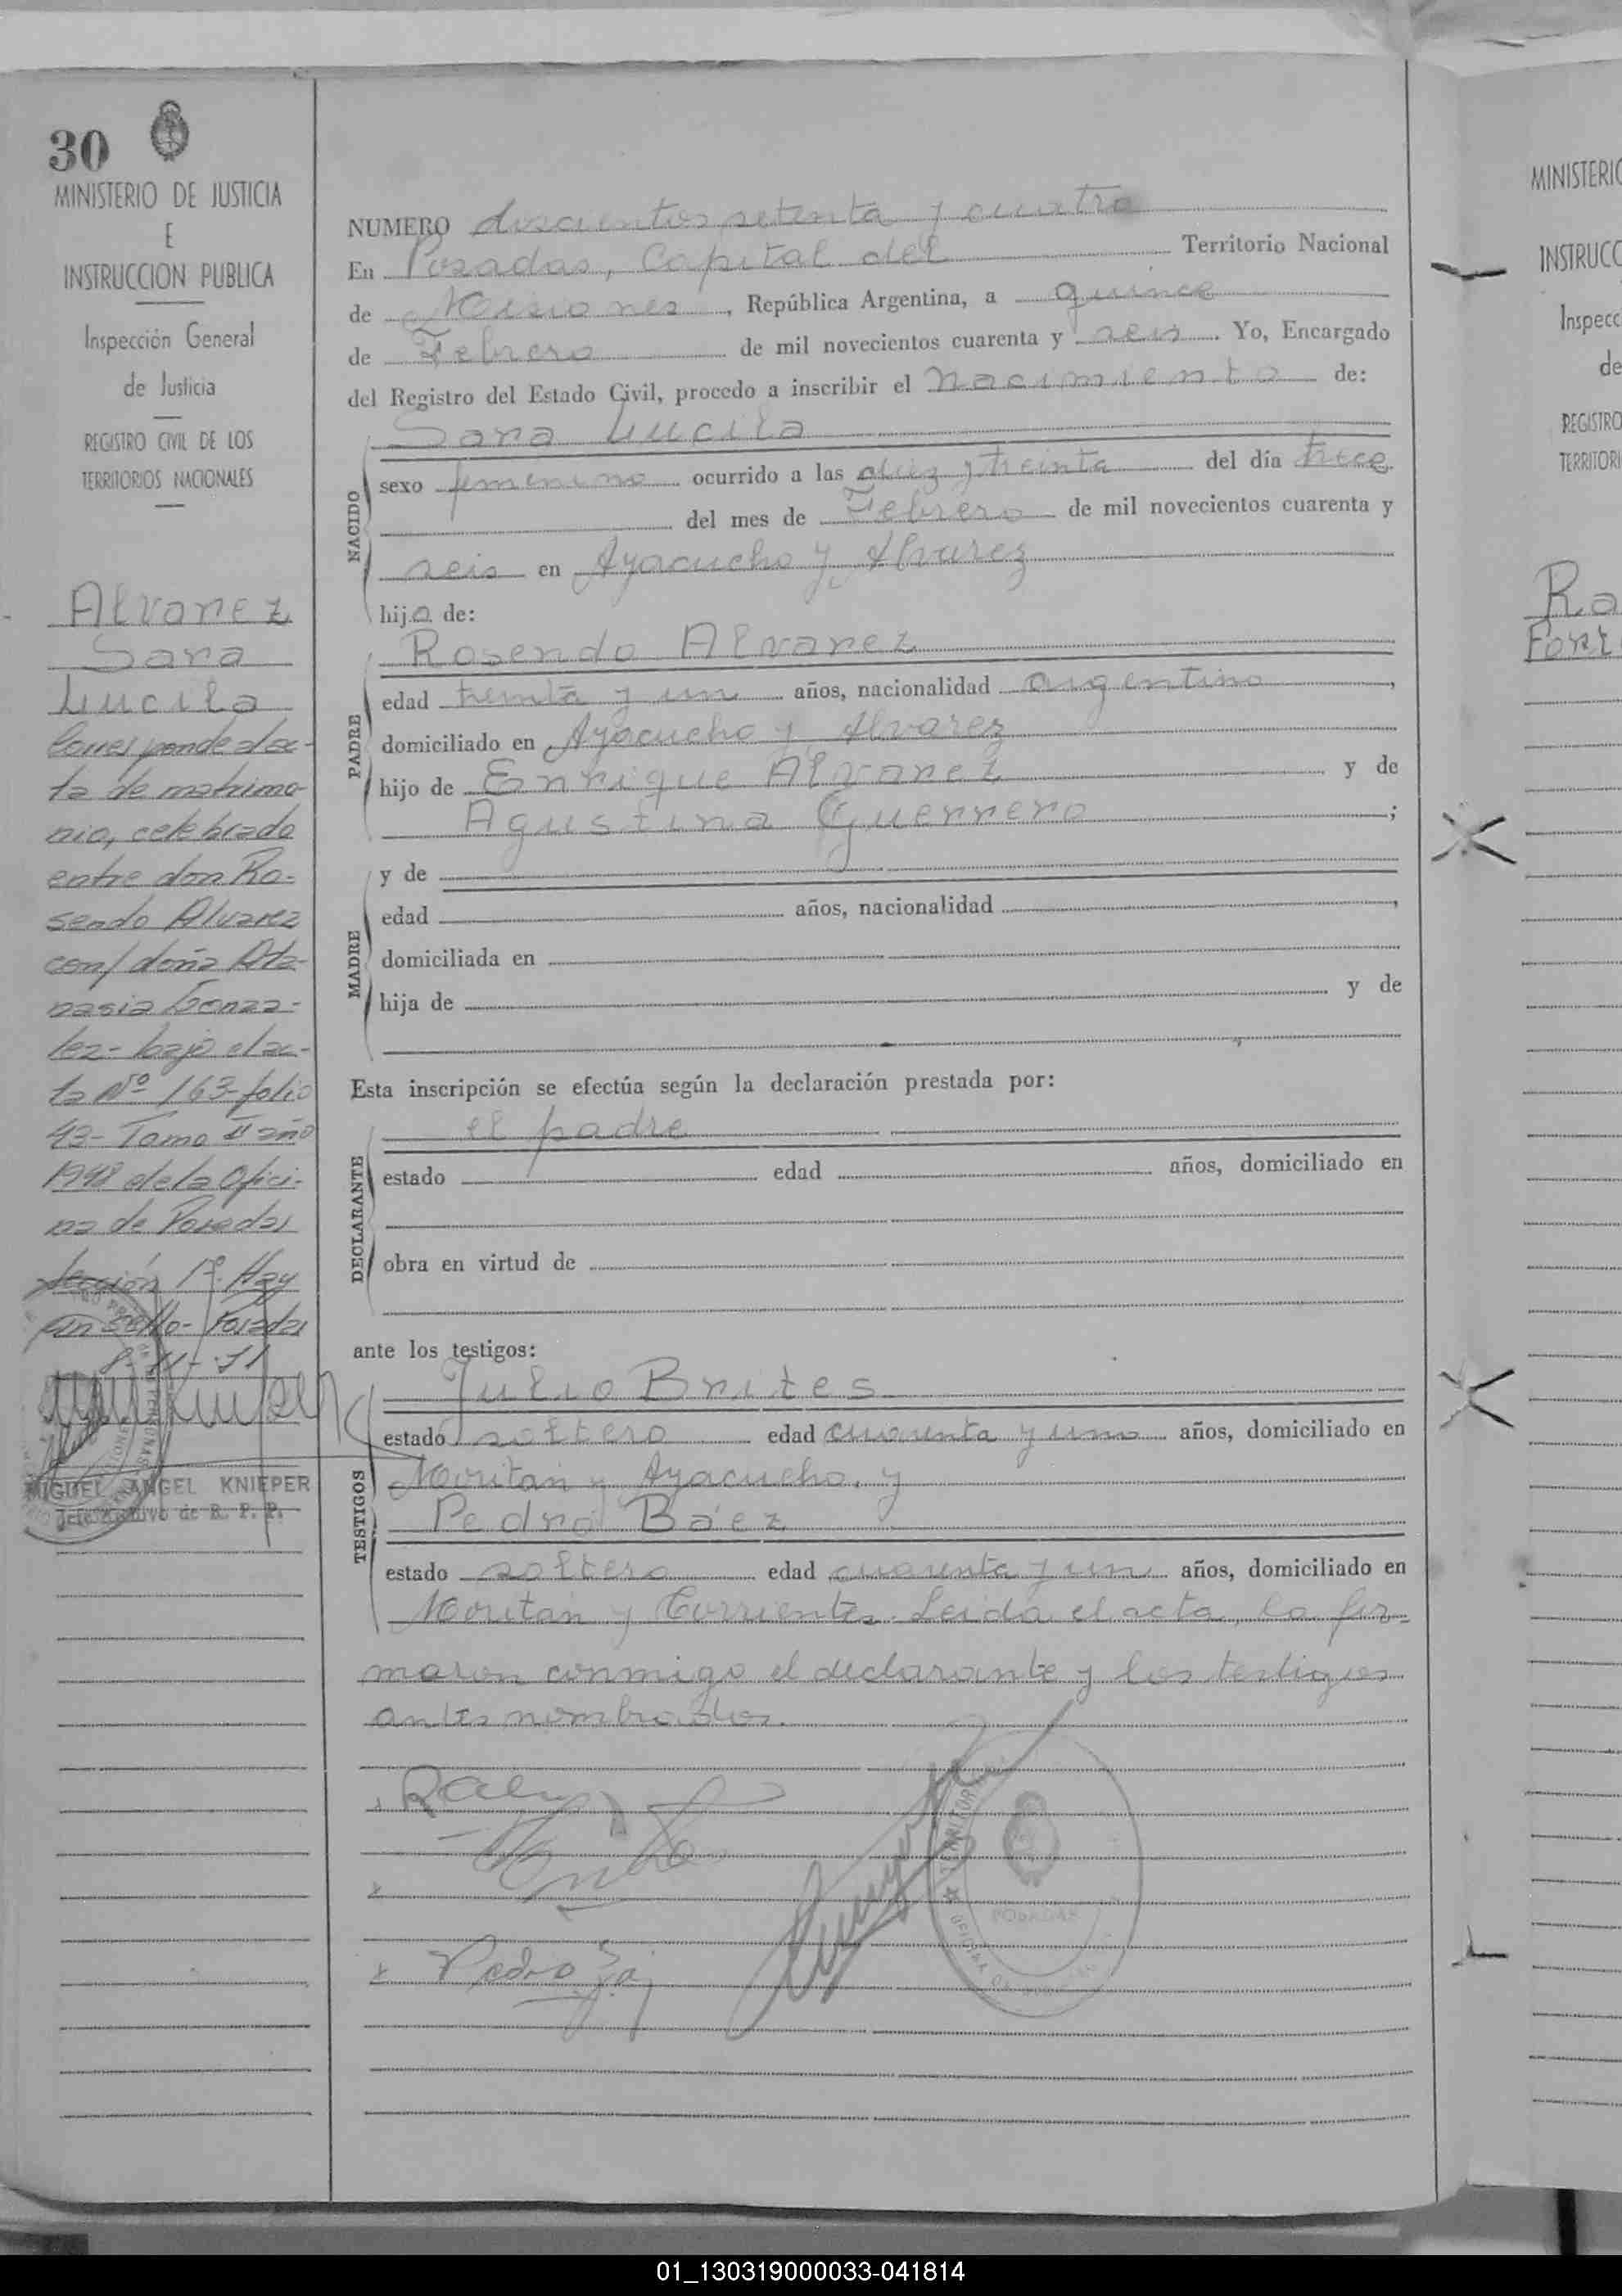 30
MINISTERIO DE JUSTICIA
E
INSTRUCCION PUBLICA
Inspección General
de Justicia
REGISTRO CIVIL DE LOS
TERRITORIOS NACIONALES
Alvarez
Sara
Lucila
Corresponde al ac-
ta de matrimo-
nio, celebrado
entre don Ro-
sendo Alvarez
con/ doña Ata-
nasia Gonza-
lez- bajo el ac-
ta Nº 163- folio
43- Tomo II año
1948 de la Ofici-
na de Posadas
Sección 1ª. Hay
un sello- Posadas
8-11-71
MIGUEL ANGEL KNIEPER
Jefe Archivo de R. P. P.
NUMERO doscientos setenta y cuatro
En Posadas, Capital del Territorio Nacional
de Misiones, República Argentina, a quince
de Febrero de mil novecientos cuarenta y seis. Yo, Encargado
del Registro del Estado Civil, procedo a inscribir el nacimiento de:
NACIDO
Sara Lucila
sexo femenino ocurrido a las diez y treinta del día trece
del mes de Febrero de mil novecientos cuarenta y
seis en Ayacucho y Alvarez
hija de:
PADRE
Rosendo Alvarez
edad treinta y un años, nacionalidad argentino,
domiciliado en Ayacucho y Alvarez
hijo de Enrique Alvarez y de
Agustina Guerrero;
MADRE
y de
edad años, nacionalidad ,
domiciliada en
hija de y de
Esta inscripción se efectúa según la declaración prestada por:
DECLARANTE
el padre
estado edad años, domiciliado en
obra en virtud de
ante los testigos:
TESTIGOS
Julio Brites
estado soltero edad cuarenta y uno años, domiciliado en
y Ayacucho, y
Pedro Báez
estado soltero edad cuarenta y un años, domiciliado en
y Corrientes. Leida el acta, la fir-
maron conmigo el declarante y los testigos
antes nombrados.
Pedro
POSADAS
MINISTERIO
INSTRUCC
Inspecc
de
REGISTRO
TERRITORI
Ra
01_130319000033-041814